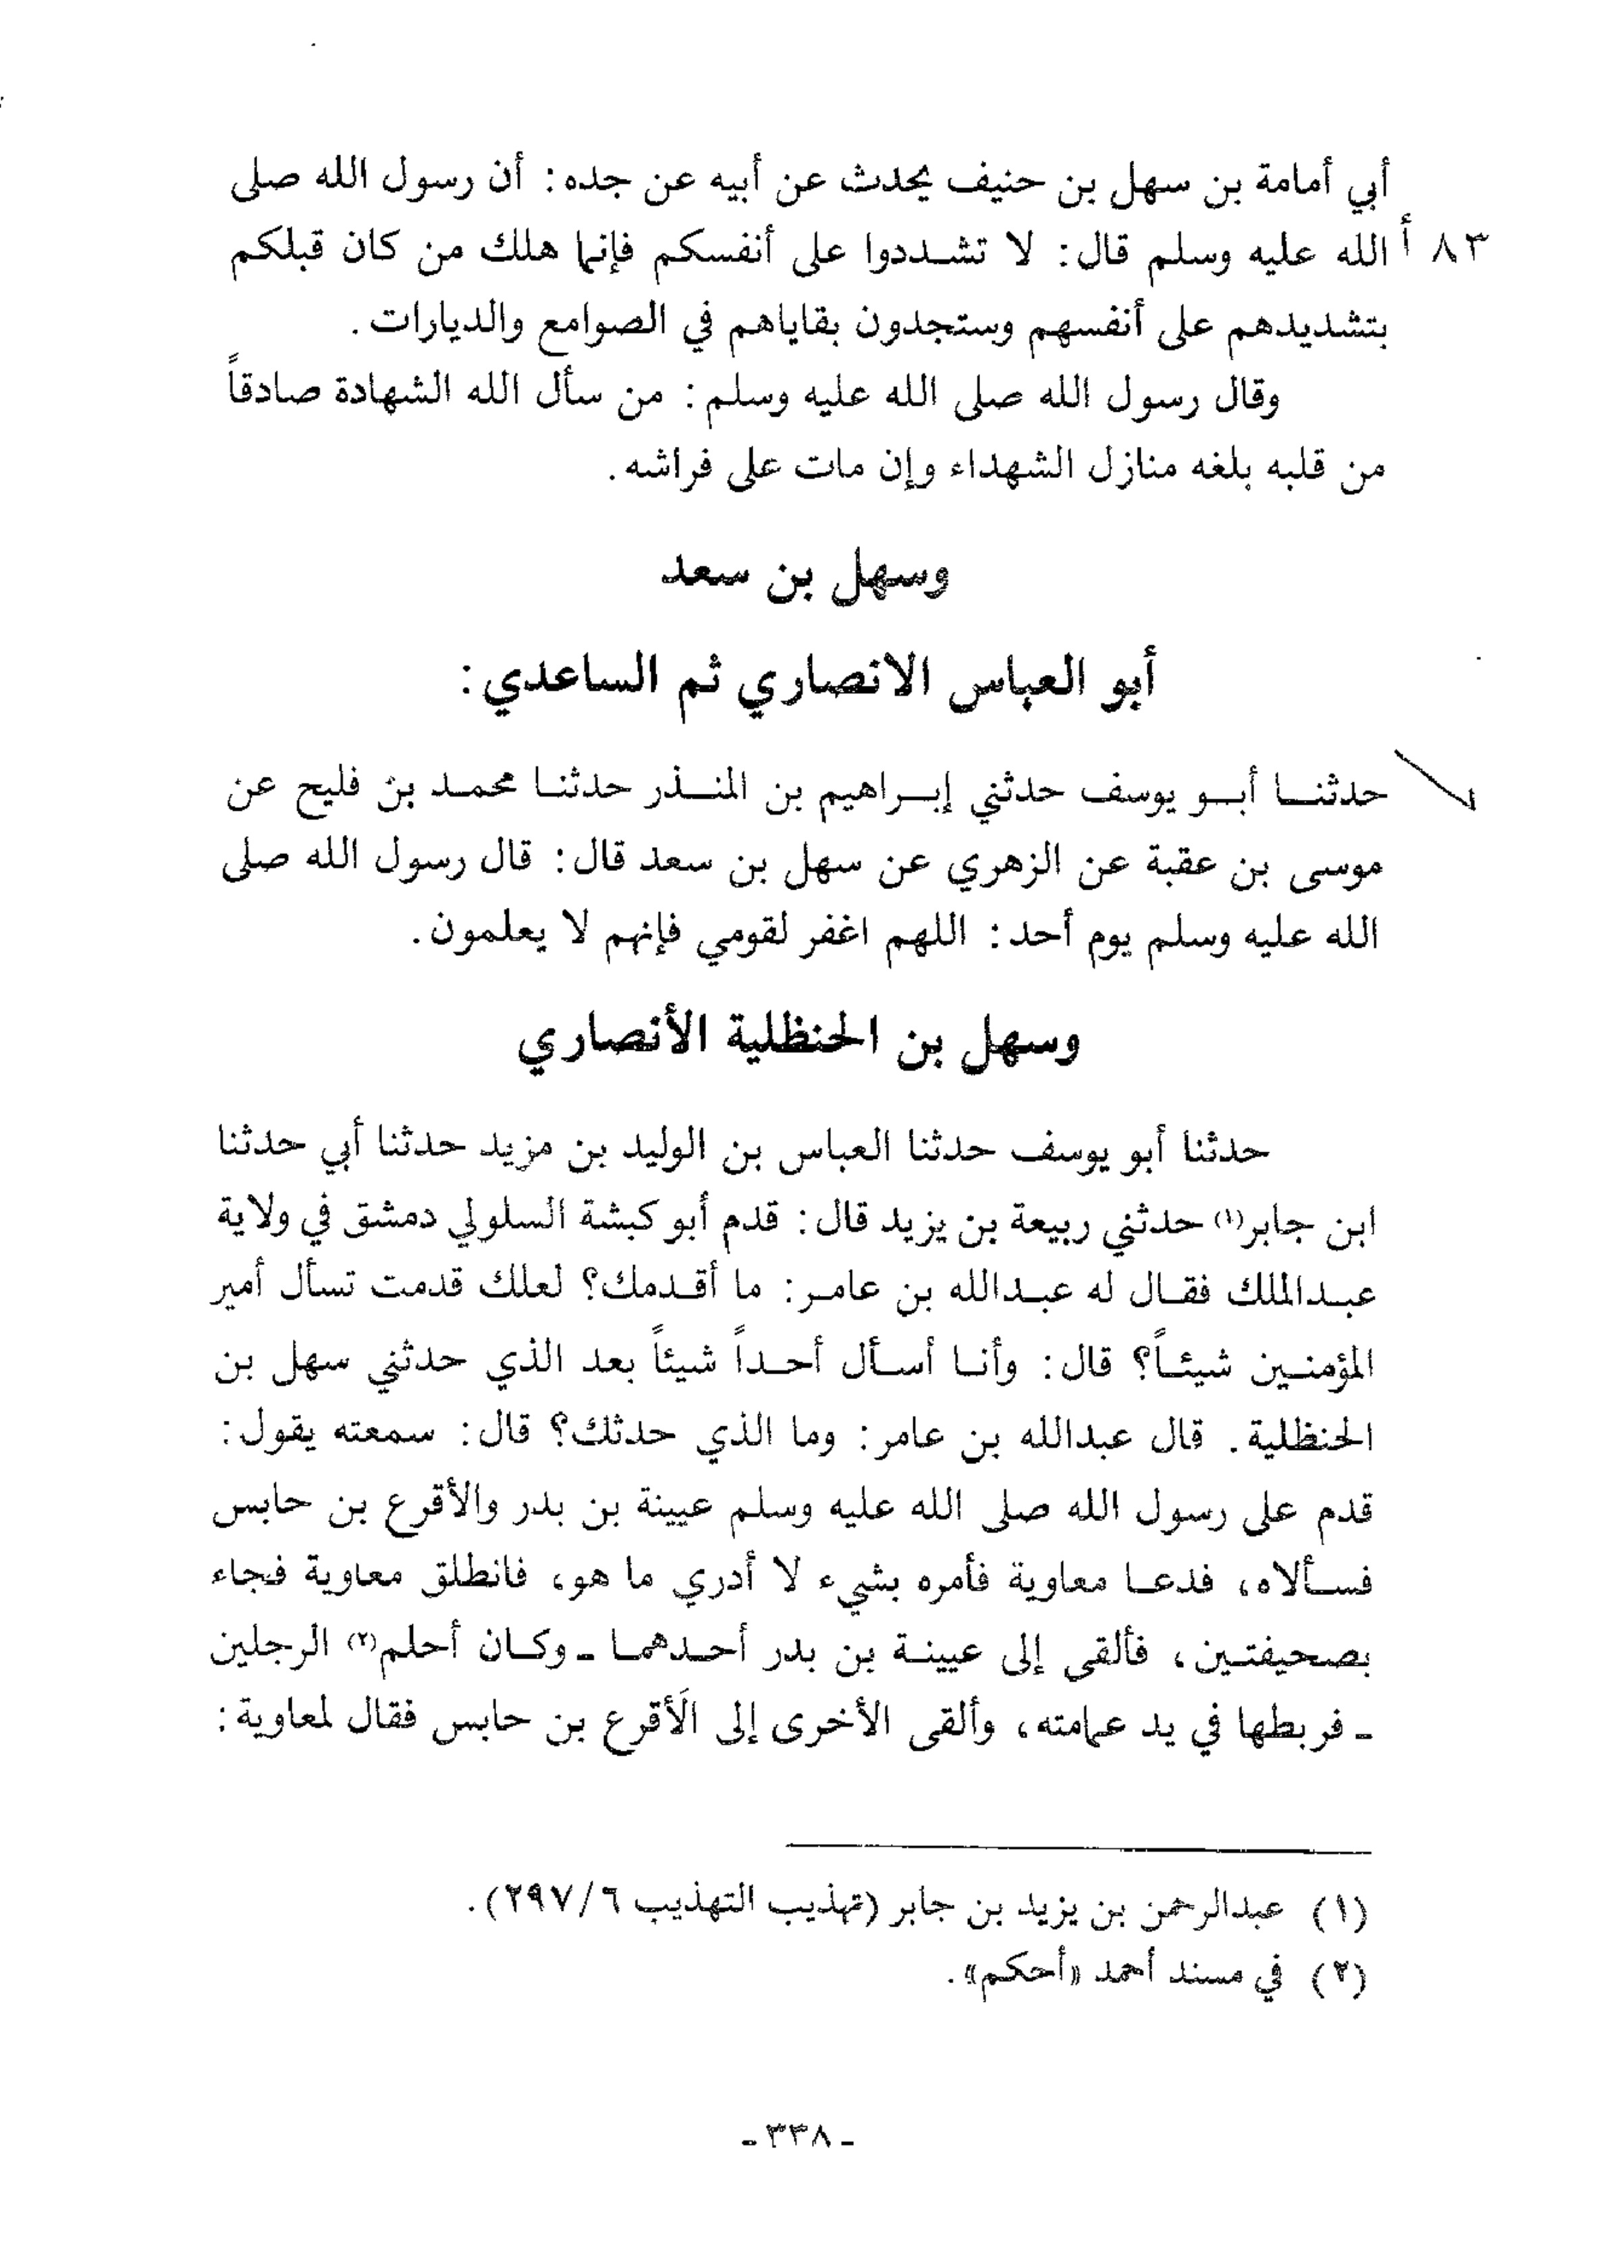 أبي أمامة بن سهل بن حنيف يحدث عن أبيه عن جده: أن رسول الله صلى
٨٣ أ الله عليه وسلم قال: لا تشددوا على أنفسكم فإنما هلك من كان قبلكم
بتشديدهم على أنفسهم وستجدون بقاياهم في الصوامع والديارات.
وقال رسول الله صلى الله عليه وسلم: من سأل الله الشهادة صادقاً
من قلبه بلغه منازل الشهداء وإن مات على فراشه.
وسهل بن سعد
أبو العباس الانصاري ثم الساعدي:
حدثنا أبو يوسف حدثني إبراهيم بن المنذر حدثنا محمد بن فليح عن
موسى بن عقبة عن الزهري عن سهل بن سعد قال: قال رسول الله صلى
الله عليه وسلم يوم أحد: اللهم اغفر لقومي فإنهم لا يعلمون.
وسهل بن الحنظلية الأنصاري
حدثنا أبو يوسف حدثنا العباس بن الوليد بن مزيد حدثنا أبي حدثنا
ابن جابر(١) حدثني ربيعة بن يزيد قال: قدم أبو كبشة السلولي دمشق في ولاية
عبدالملك فقال له عبدالله بن عامر: ما أقدمك؟ لعلك قدمت تسأل أمير
المؤمنين شيئاً؟ قال: وأنا أسأل أحداً شيئاً بعد الذي حدثني سهل بن
الحنظلية. قال عبدالله بن عامر: وما الذي حدثك؟ قال: سمعته يقول:
قدم على رسول الله صلى الله عليه وسلم عيينة بن بدر والأقرع بن حابس
فسألاه، فدعا معاوية فأمره بشيء لا أدري ما هو، فانطلق معاوية فجاء
بصحيفتين، فألقى إلى عيينة بن بدر أحدهما - وكان أحلم(٢) الرجلين
- فربطها في يد عمامته، وألقى الأخرى إلى الأقرع بن حابس فقال لمعاوية:
(١) عبدالرحمن بن يزيد بن جابر (تهذيب التهذيب ٢٩٧/٦).
(٢) في مسند أحمد «أحكم».
- ٣٣٨ -